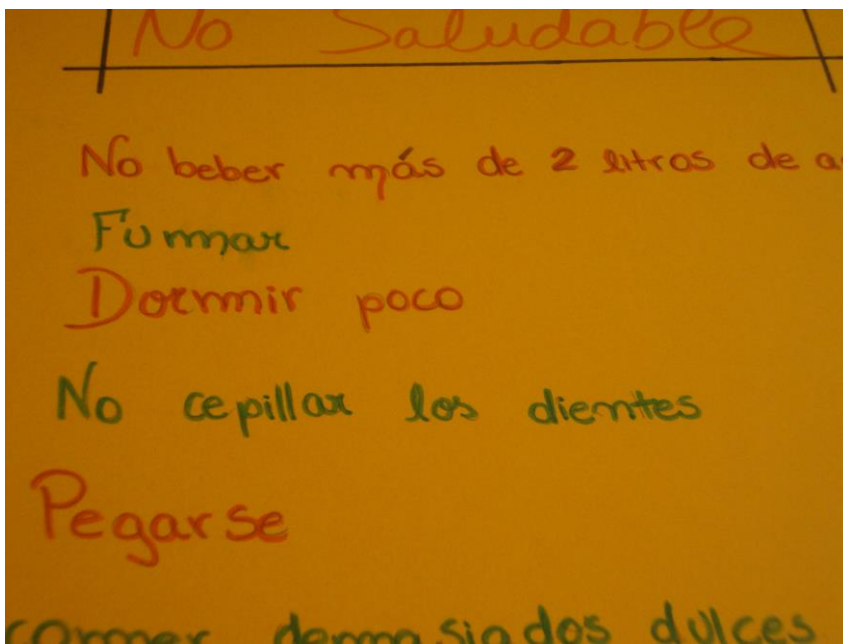 No Saludable
No beber más de 2 litros de a
Fumar
Dormir poco
No cepillar los dientes
Pegarse
comer demasiados dulces